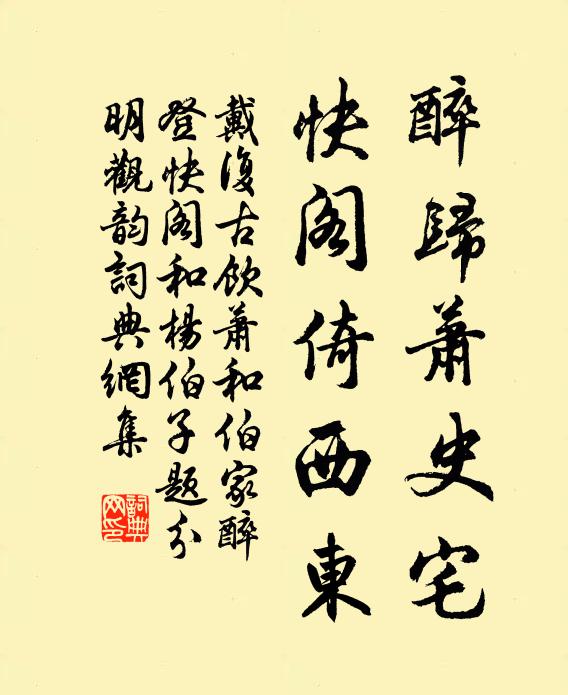 醉歸蕭史宅
快阁倚西東
戴復古飲蕭和伯家醉
登快阁和楊伯子題分
明觀韵詞典網集
詞典
网印